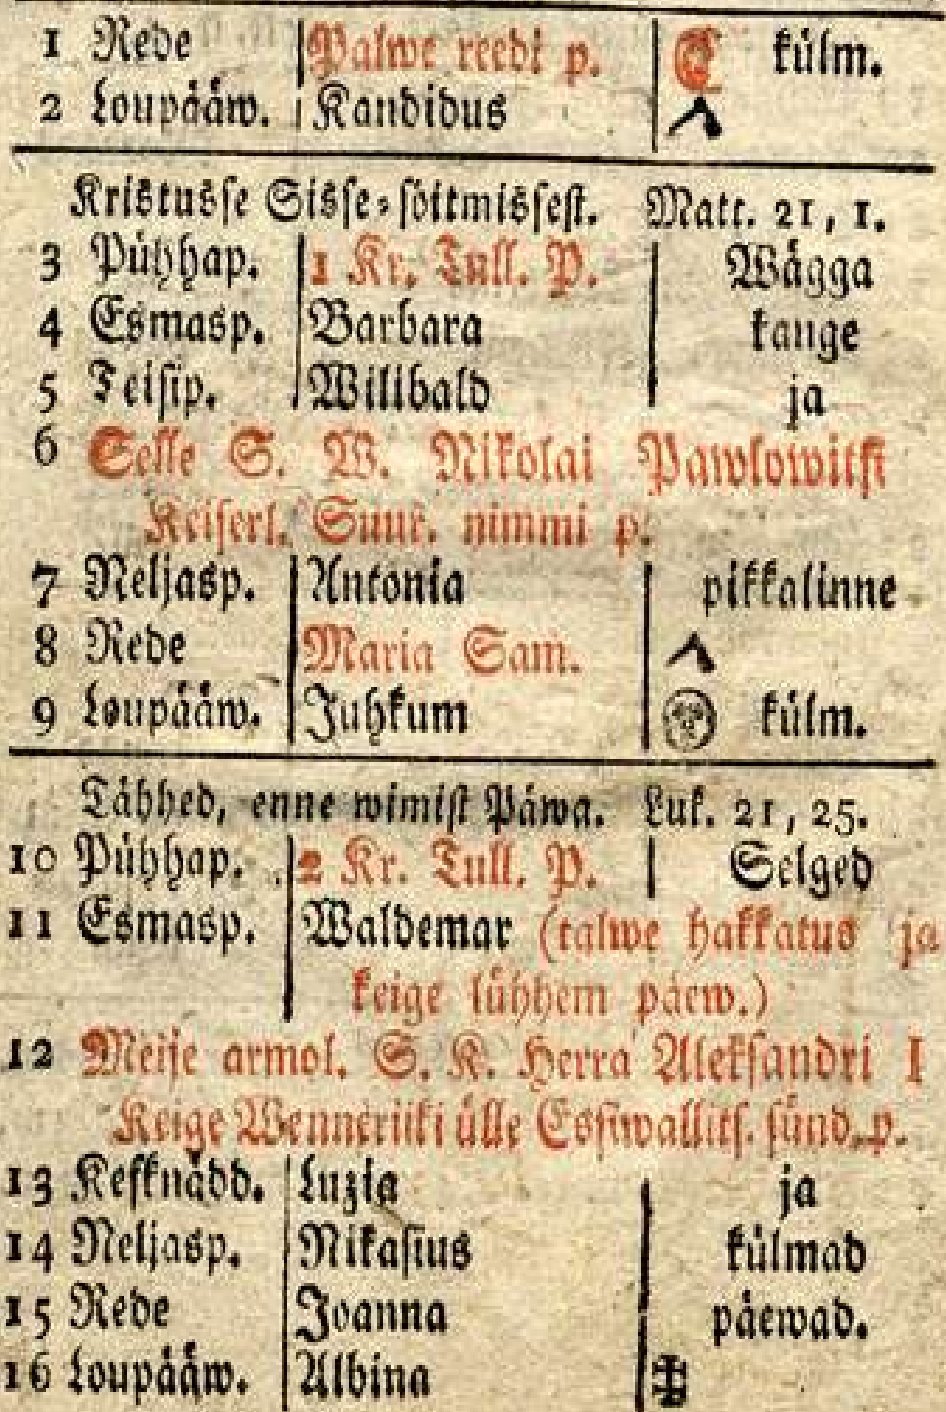 1 Rede Palwe reedi p. külm.
2 Loupääw. Kandidus
Kristusse Sisse-söitmissest. Matt. 21, 1.
3 Pühhap. 1 Kr. Tull. P. Wägga
4 Esmasp. Barbara kange
5 Teisip. Willibald ja
6 Selle S. W. Nikolai Pawlowitsi
Keiserl. Suur. nimmi p.
7 Neljasp. Antonia pikkalinne
8 Rede Maria Sam.
9 Loupääw. Juhkum külm.
Tähhed, enne wimist Päwa. Luk. 21, 25.
10 Pühhap. 2 Kr. Tull. P. Selged
11 Esmasp. Waldemar (talwe hakkatus ja
keige lühhem päew.)
12 Meije armol. S. K. Herra Aleksandri I
Keige Wenneriiki ülle Essiwallits. sünd. p.
13 Kesknädd. Luzia ja
14 Neljasp. Nikasius külmad
15 Rede Joanna päewad.
16 Loupääw. Albina